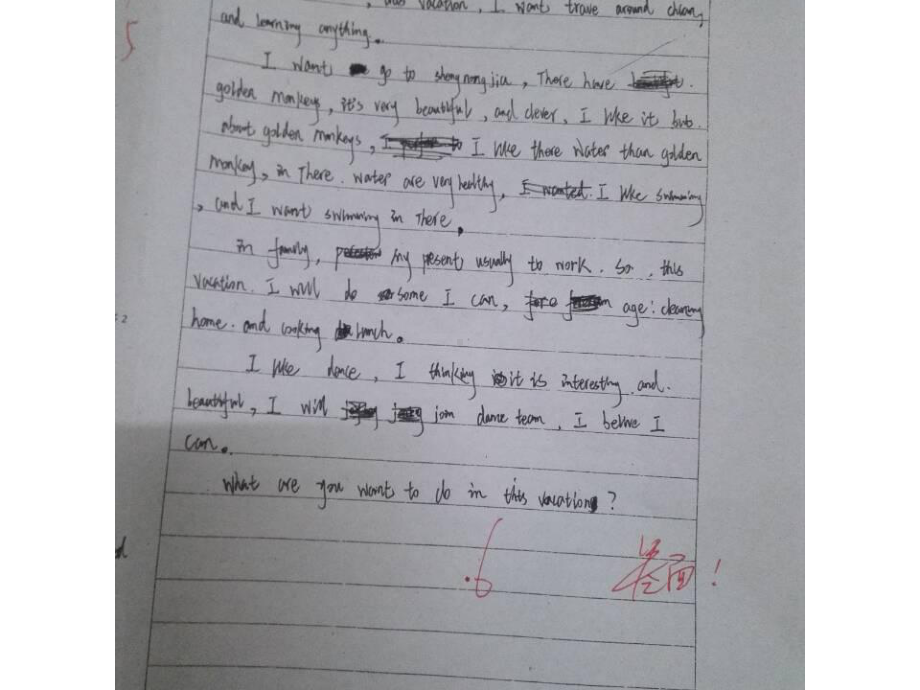 , this vacation, I want trave around chian,
and learning anything.
5
I want go to shengnongjia, There have
golden monkeys, it's very beautiful, and clever, I like it but
about golden monkeys, I like there water than golden
monkey, in There. water are very healthy, I wanted. I like swimming
, and I want swimming in There.
in family, my present usually to work. So, this
vacation. I will do some I can, age: cleaning
home. and cooking lunch.
I like dance, I thinking it is interesting and.
beautiful, I will join dance team, I belive I
can.
What are you want to do in this vacation?
6
卷面!